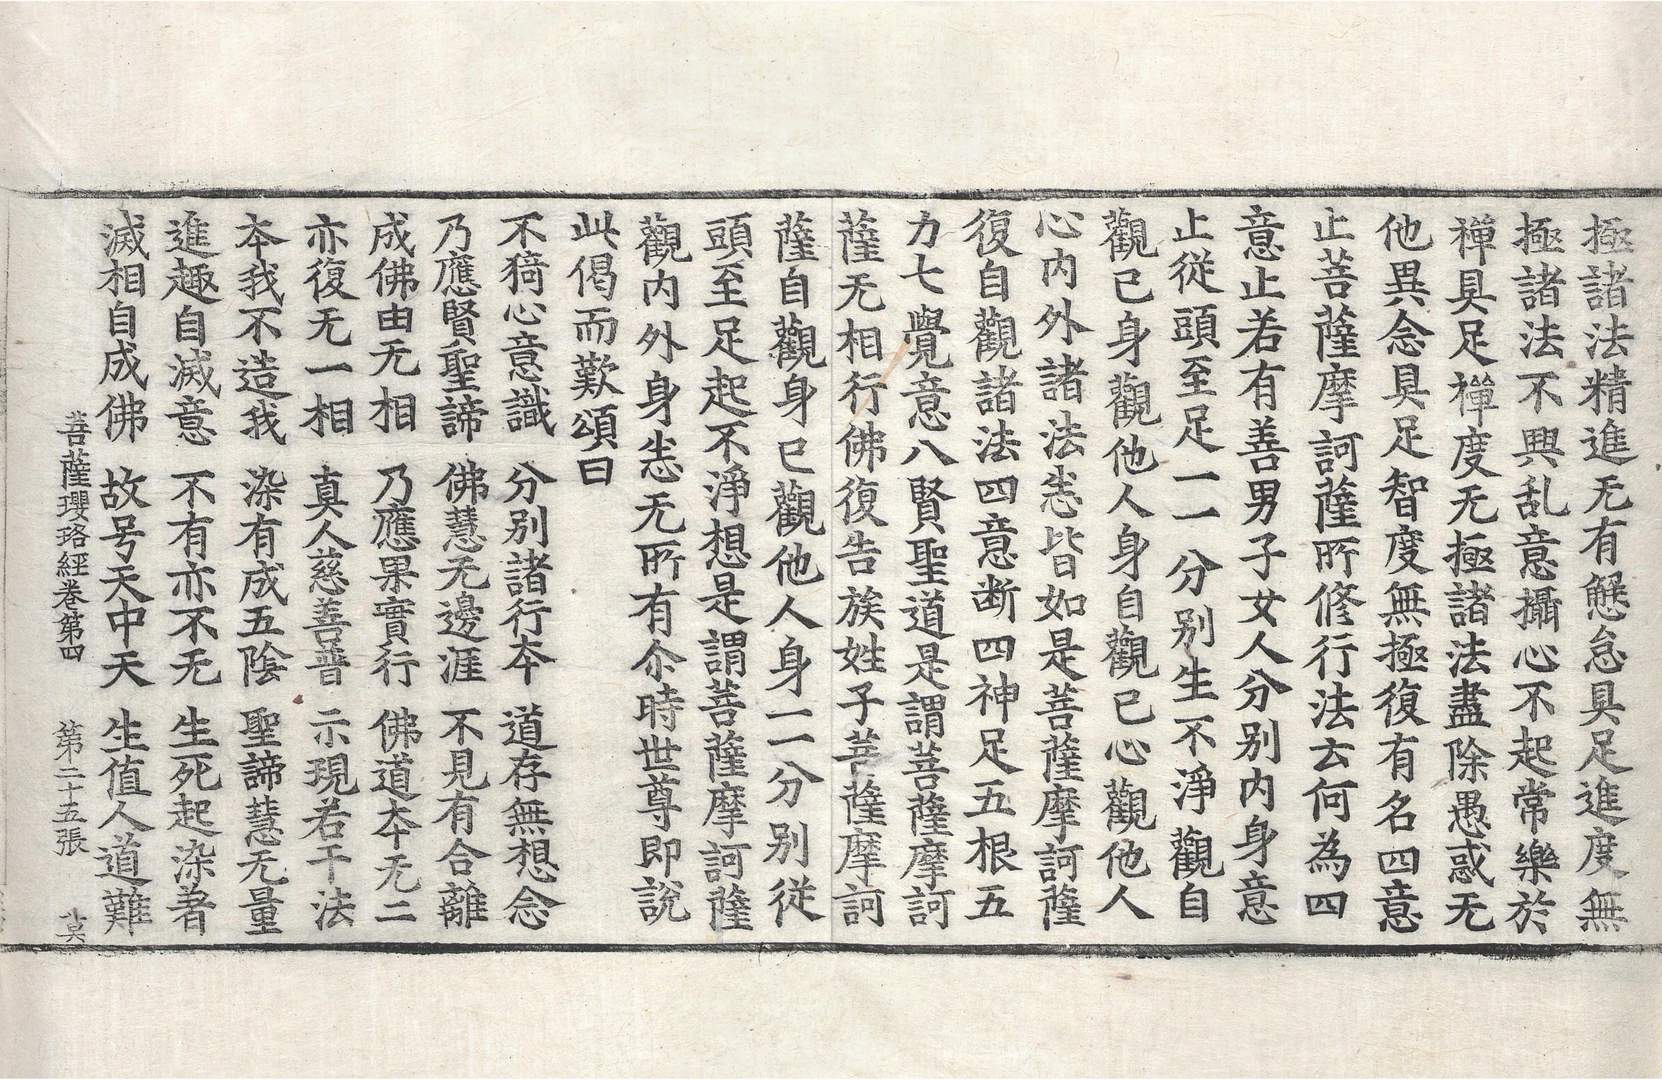 極諸法精進无有懈怠具足進度無
極諸法不興乱意攝心不起常樂於
禪具足禪度无極諸法盡除愚惑无
他異念具足智度無極復有名四意
止菩薩摩訶薩所修行法云何為四
意止若有善男子女人分別内身意
止從頭至足一一分別生不淨觀自
觀已身觀他人身自觀已心觀他人
心内外諸法悉皆如是菩薩摩訶薩
復自觀諸法四意断四神足五根五
力七覺意八賢聖道是謂菩薩摩訶
薩无相行佛復告族姓子菩薩摩訶
薩自觀身已觀他人身一一分別從
頭至足起不淨想是謂菩薩摩訶薩
觀内外身悉无所有尒時世尊即說
此偈而歎頌曰
不猗心意識 分別諸行夲 道存無想念
乃應賢聖諦 佛慧无邊涯 不見有合離
成佛由无相 乃應果實行 佛道夲无二
亦復无一相 真人慈善普 示現若干法
夲我不造我 染有成五陰 聖諦慧无量
進趣自滅意 不有亦不无 生死起染著
滅相自成佛 故号天中天 生值人道難
菩薩瓔珞經卷第四 第二十五張 莫